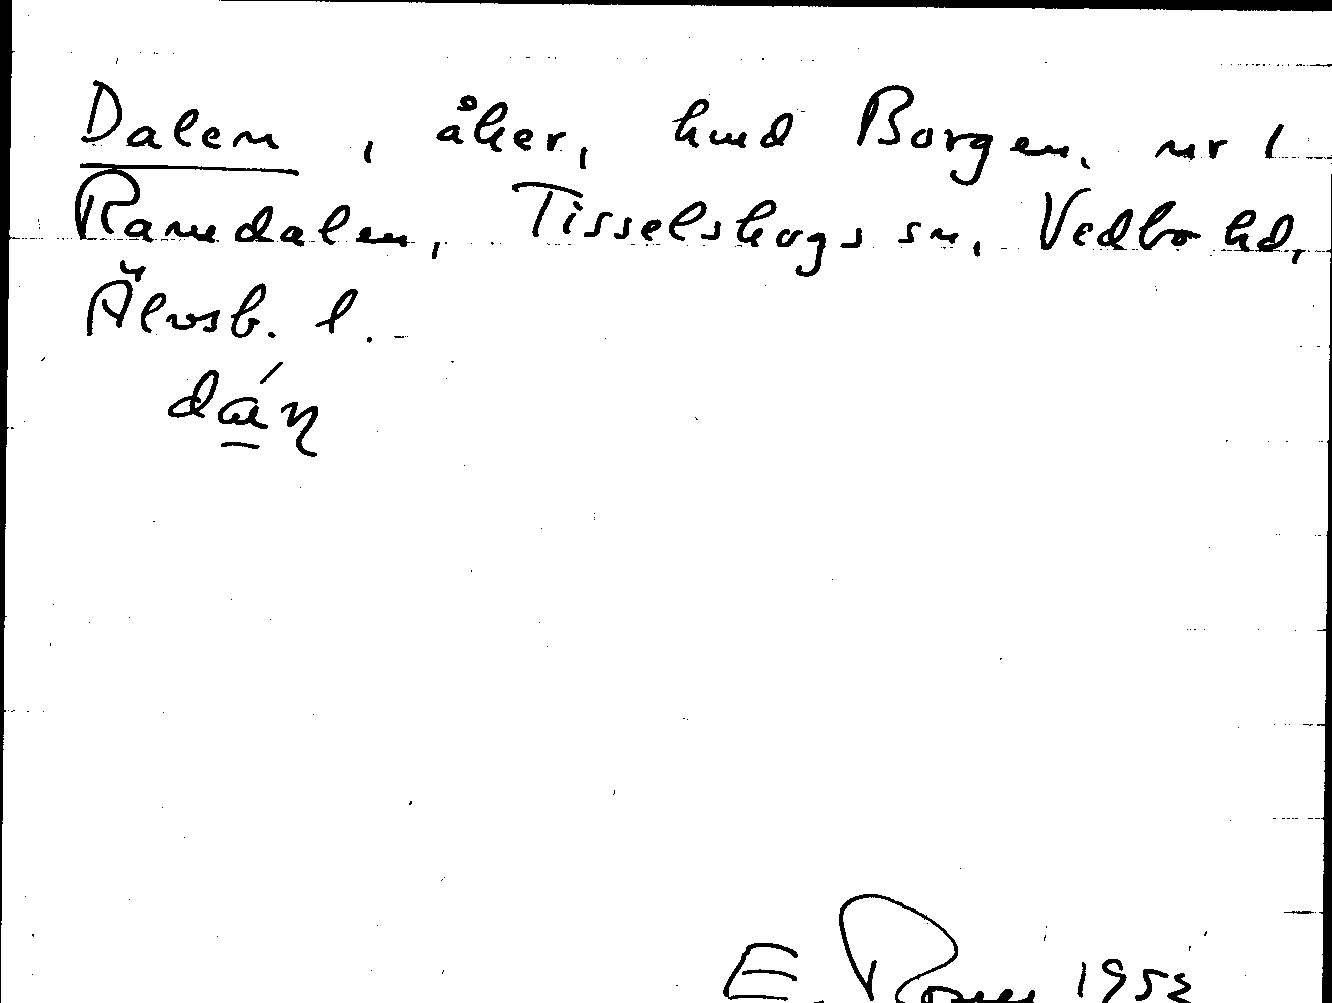 Dalen, åker, hmd Borgen, nr 1
Ramdalen, Tisselskogs sn, Vedbo hd,
Älvsb. l.
dán
E. 195